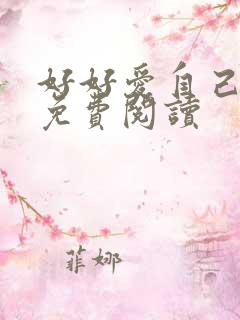 好好愛自己
免費閱讀
菲娜